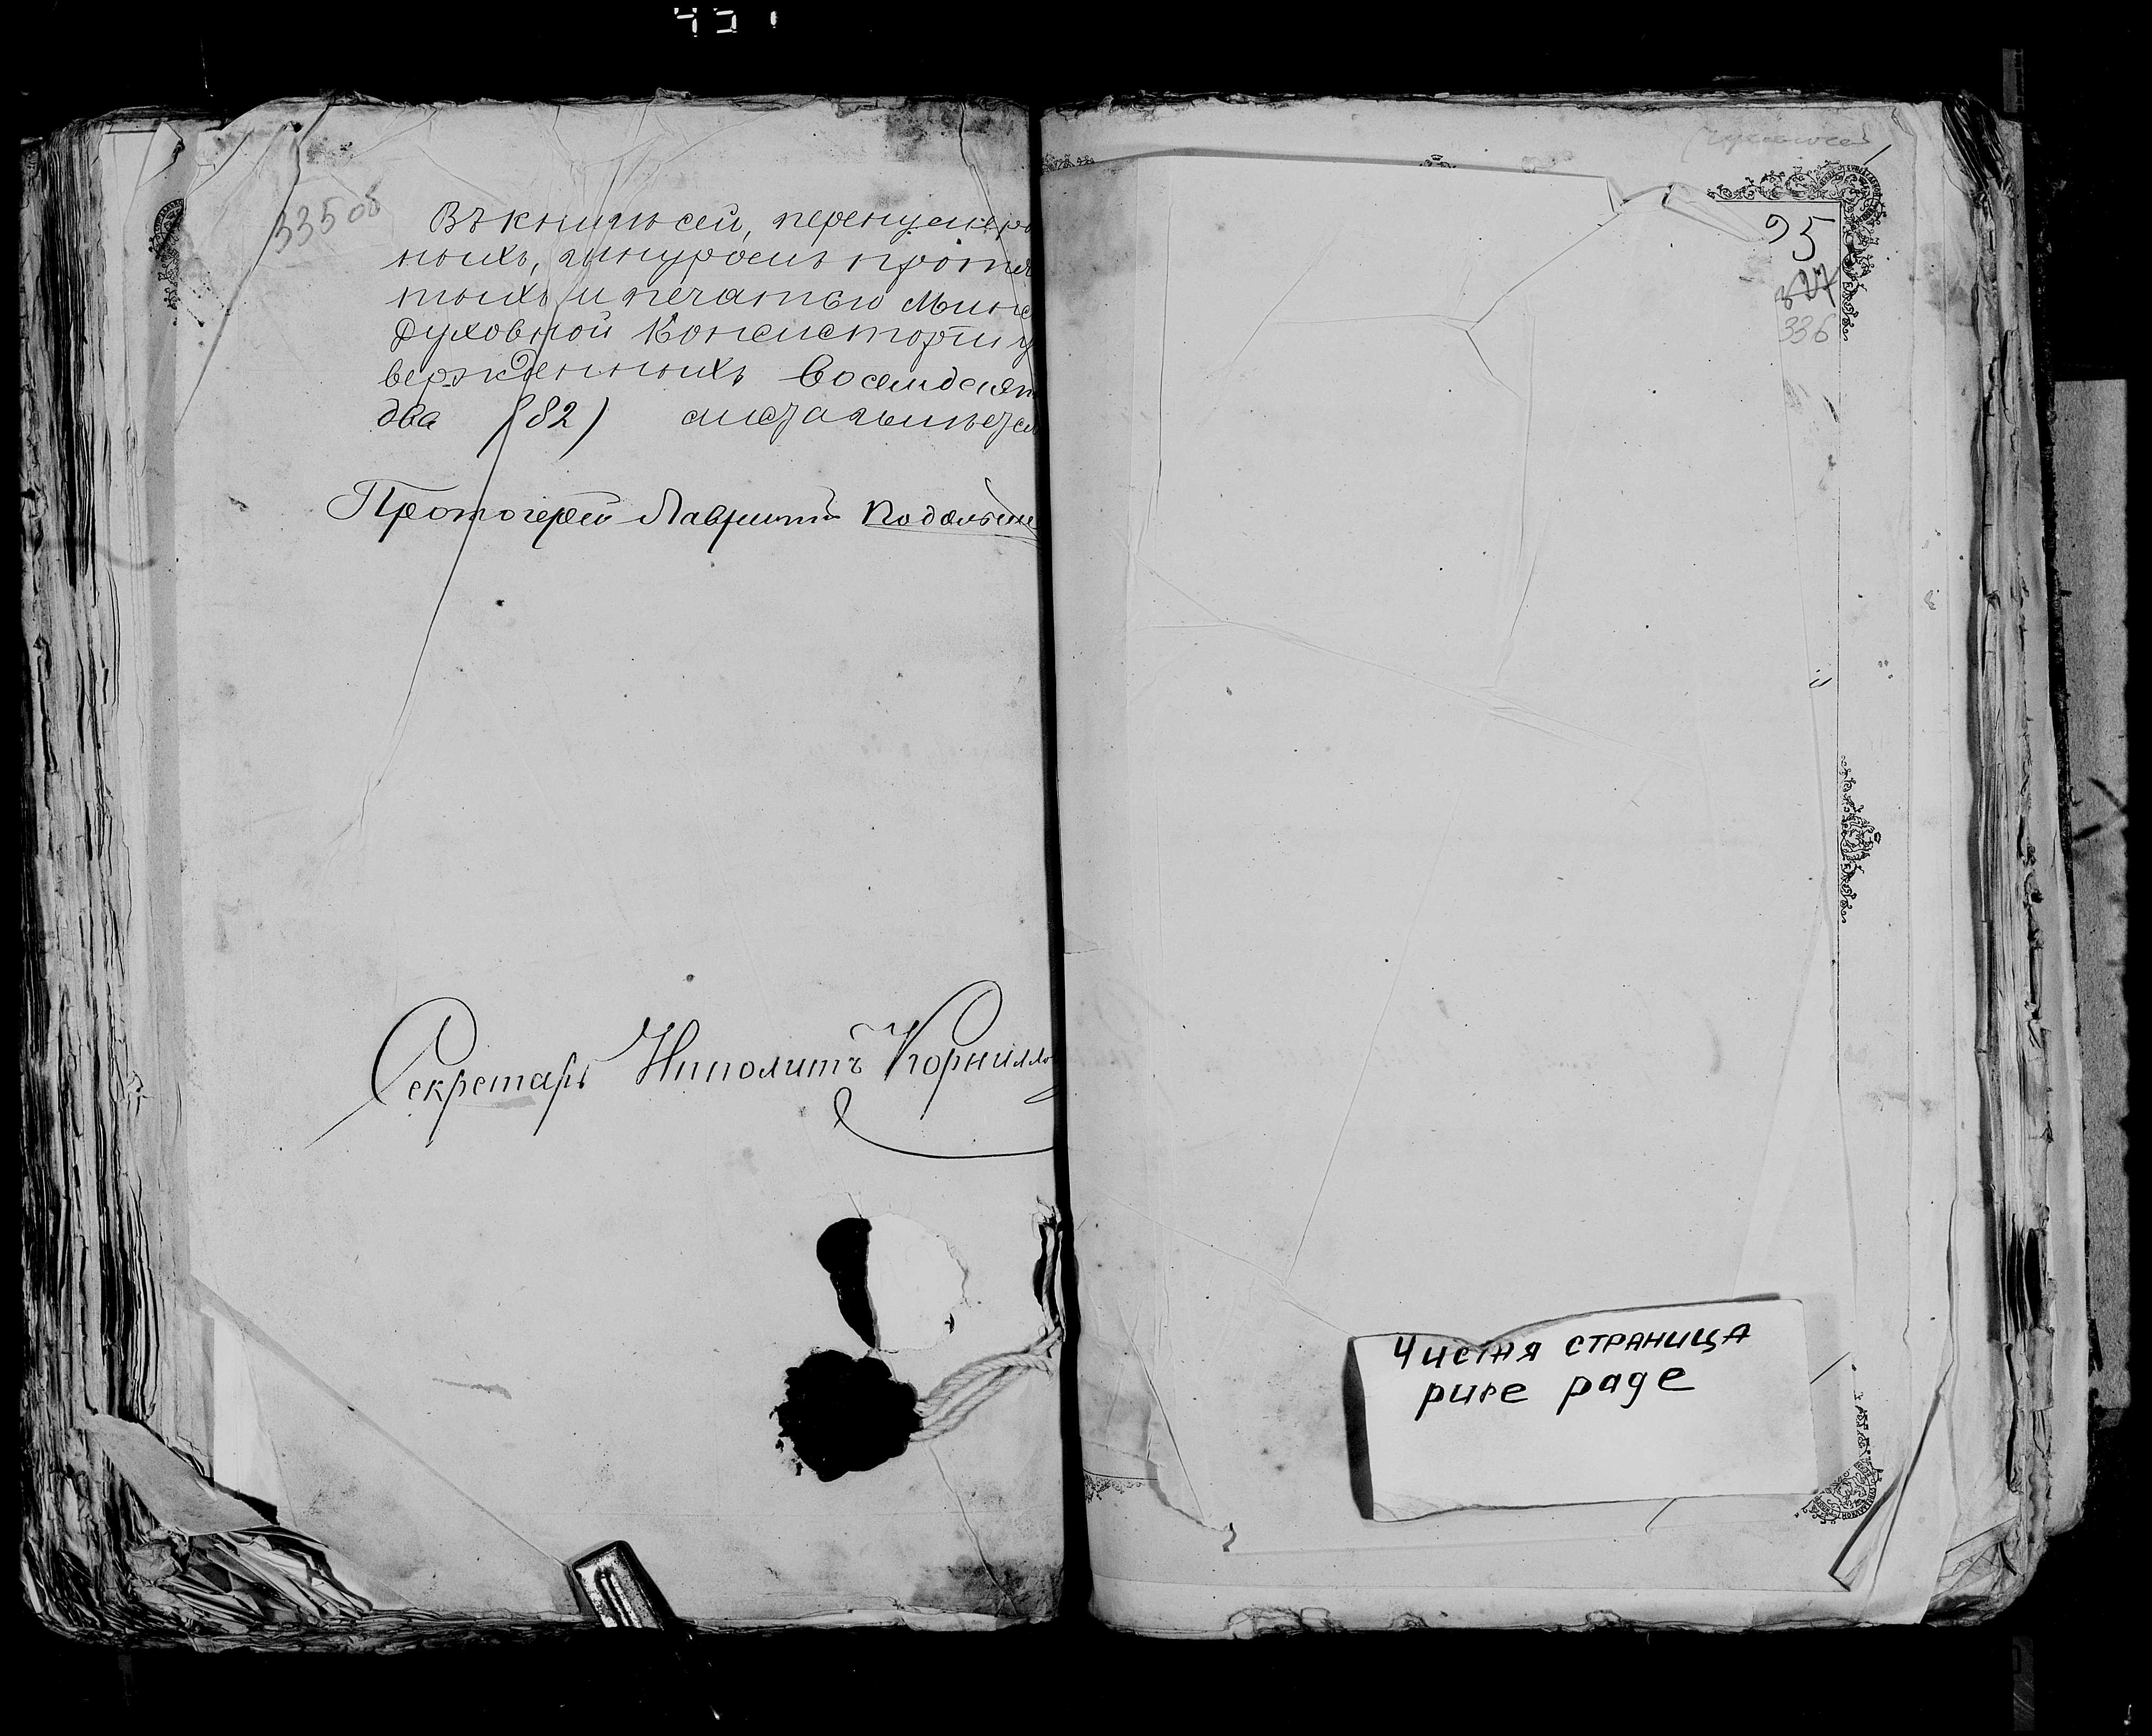 335 об
Въ книгѣ сей, перенумеро
ныхъ, шнуромъ протя
тыхъ и печатью Минс
Духовной Консисторіи у
вержденныхъ восемдесят
два (82) листа
Протоіерей Лаврентій Подольск
Секретарь Ипполитъ Корнилло
95
327
336
Чистая страница
pure page